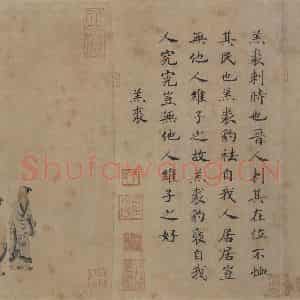 羔裘刺時也晉人刺其在位不恤
其民也羔裘豹袪自我人居居豈
無他人維子之故羔裘豹褎自我
人究究豈無他人維子之好
羔裘
Shufawang.CN